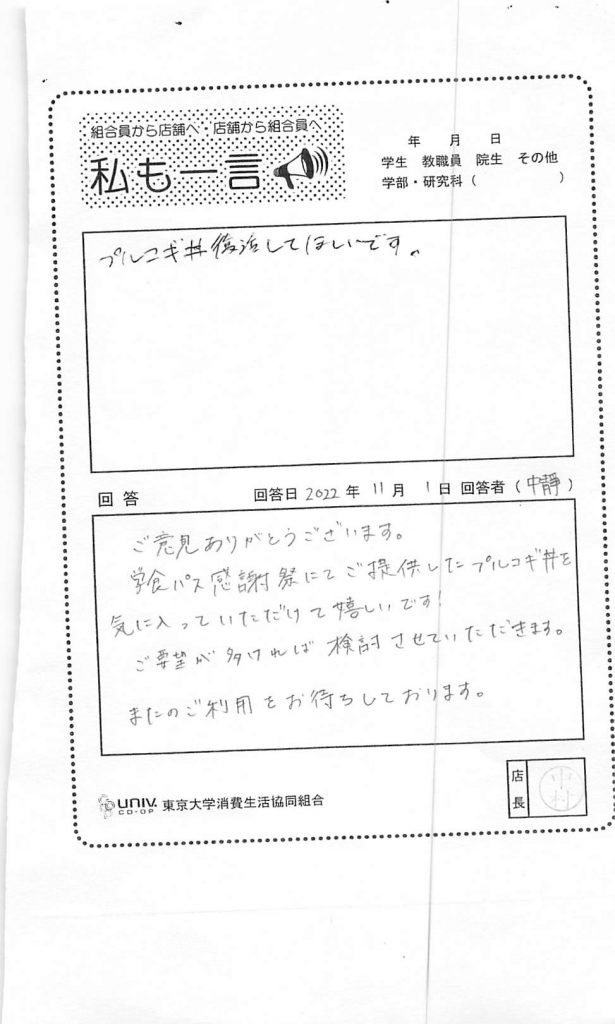 組合員から店舗へ・店舗から組合員へ
私も一言
年 月 日
学生 教職員 院生 その他
学部・研究科（ ）
プルコギ丼復活してほしいです。
回答 回答日 2022 年 11 月 1 日 回答者（中靜）
ご意見ありがとうございます。
学食パス感謝祭にてご提供したプルコギ丼を
気に入っていただけて嬉しいです!
ご要望が多ければ検討させていただきます。
またのご利用をお待ちしております。
UNIV. CO-OP 東京大学消費生活協同組合
店長 中村